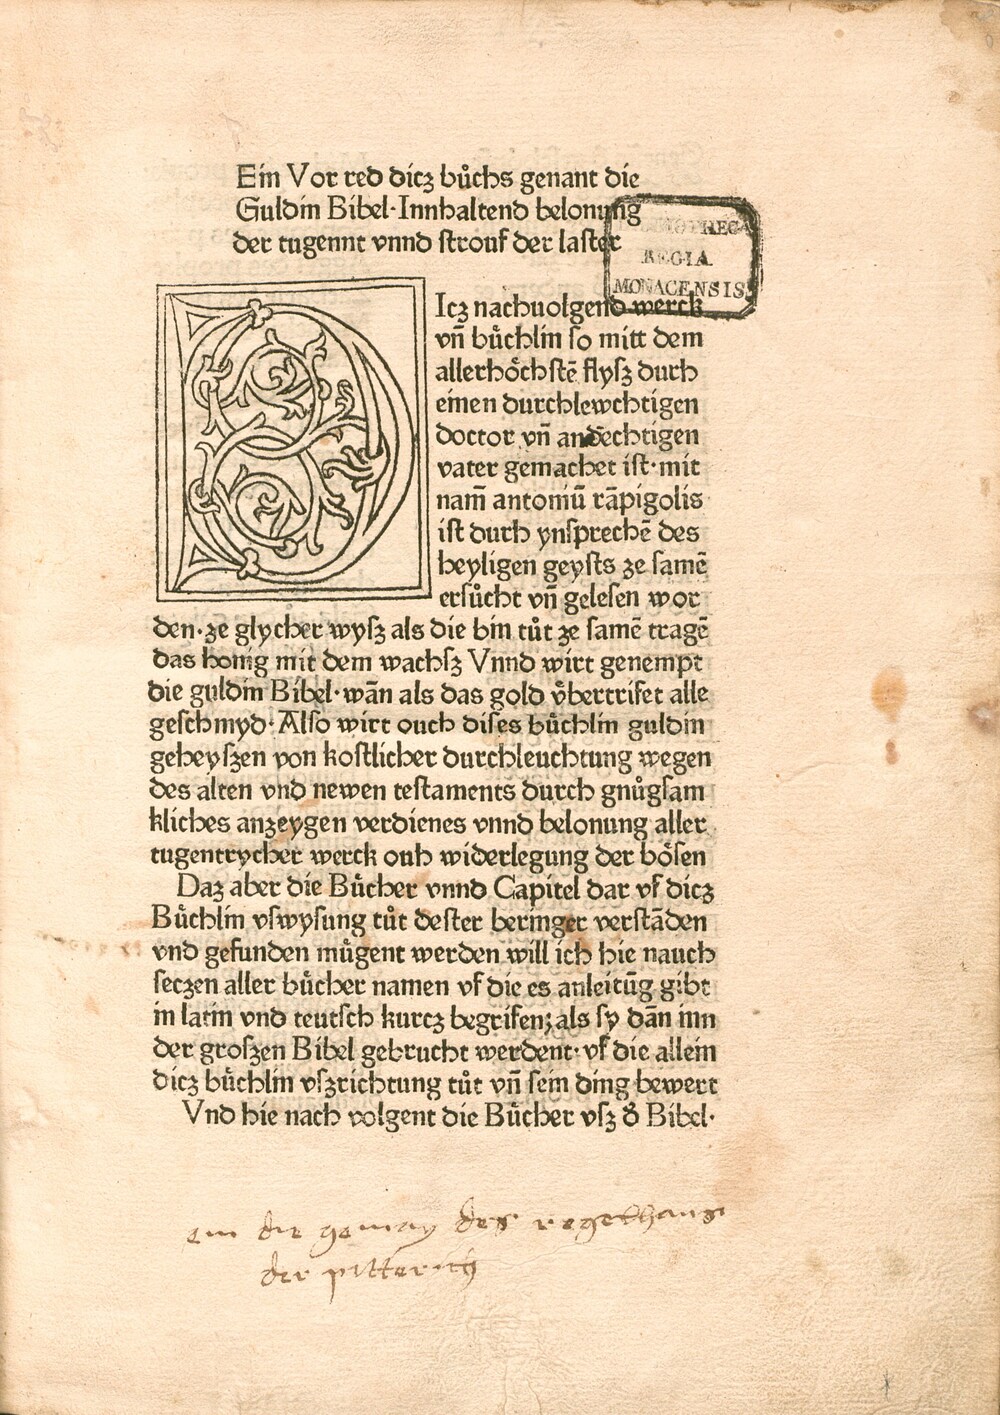 Ein Vor red dicz bůchs genant die
Guldin Bibel·Innhaltend belonung
der tugennt vnnd strouf der laster
REGIA
MONACENSIS
DIcz nachuolgend werck
vn̄ bůchlin so mitt dem
allerhoͤchstē flysz durh
einen durchlewchtigen
doctor vn̄ andechtigen
vater gemachet ist·mit
nam̄ antoniū rāpigolis
ist durh ynsprechē des
heyligen geysts ze samē
ersůcht vn̄ gelesen wor
den·ze glycher wysz als die bin tůt ze samē tragē
das honig mit dem wachsz Vnnd wirt genempt
die guldin Bibel·wān als das gold v̊bertrifet alle
geschmyd·Also wirt ouch dises bůchlin guldin
geheyszen von kostlicher durchleuchtung wegen
des alten vnd newen testaments durch gnůgsam
kliches anzeygen verdienes vnnd belonung aller
tugentrycher werck ouh widerlegung der boͤsen
Daz aber die Bůcher vnnd Capitel dar vf dicz
Bůchlin vswysung tůt dester beringer verstāden
vnd gefunden můgent werden will ich hie nauch
seczen aller bůcher namen vf die es anleitūg gibt
in latin vnd teutsch kurcz begrifen;als sy dān inn
der groszen Bibel gebrucht werdent·vf die allein
dicz bůchlin vszrichtung tůt vn̄ sein ding bewert
Vnd hie nach volgent die Bůcher vsz d̊ Bibel·
in die gemay des regelhaus
der pitterich